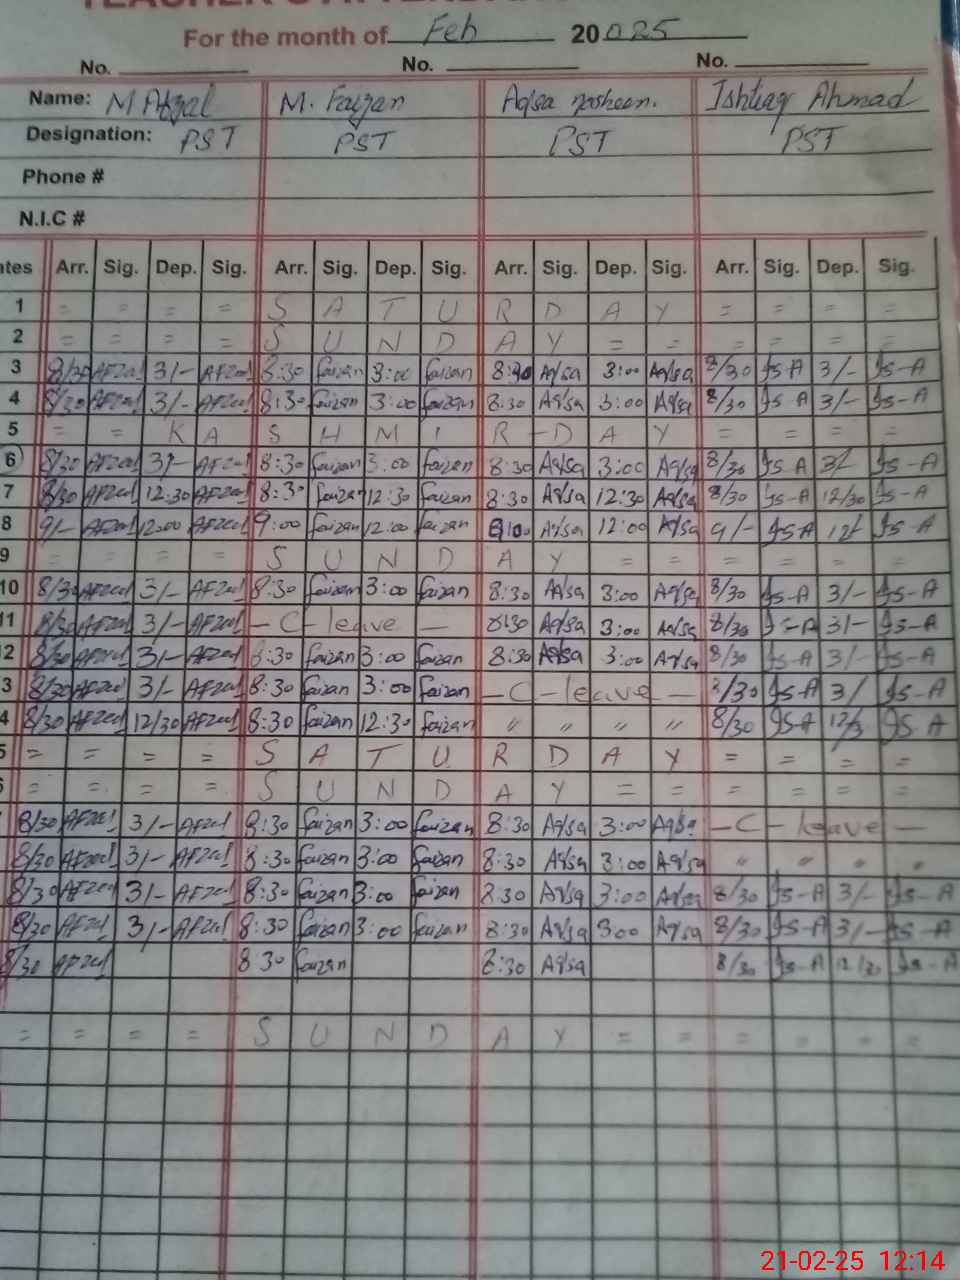 TEACHER'S ATTENDAN
For the month of Feb 2025
No. No. No.
Name: M Afzal M. Faizan Aqsa nosheen. Ishtiaq Ahmad
Designation: PST PST PST PST
Phone #
N.I.C #
ates Arr. Sig. Dep. Sig. Arr. Sig. Dep. Sig. Arr. Sig. Dep. Sig. Arr. Sig. Dep. Sig.
1 = = = = S A T U R D A Y = = = =
2 = = = = S U N D A Y = = = = = =
3 8/30 AFzal 3/- AFzal 8:30 faizan 3:00 faizan 8:30 Aqsa 3:00 Aqsa 8/30 Is-A 3/- Is-A
4 8/30 AFzal 3/- AFzal 8:30 faizan 3:00 faizan 8:30 Aqsa 3:00 Aqsa 8/30 Is-A 3/- Is-A
5 = = K A S H M I R - D A Y = = = =
6 8/30 AFzal 3/- AFzal 8:30 faizan 3:00 faizan 8:30 Aqsa 3:00 Aqsa 8/30 Is-A 3/- Is-A
7 8/30 AFzal 12:30 AFzal 8:30 faizan 12:30 faizan 8:30 Aqsa 12:30 Aqsa 8/30 Is-A 12/30 Is-A
8 9/- AFzal 12:00 AFzal 9:00 faizan 12:00 faizan 9:00 Aqsa 12:00 Aqsa 9/- Is-A 12/- Is-A
9 = = = = S U N D A Y = = = = = =
10 8/30 AFzal 3/- AFzal 8:30 faizan 3:00 faizan 8:30 Aqsa 3:00 Aqsa 8/30 Is-A 3/- Is-A
11 8/30 AFzal 3/- AFzal - C - leave - 8:30 Aqsa 3:00 Aqsa 8/30 Is-A 3/- Is-A
12 8/30 AFzal 3/- AFzal 8:30 faizan 3:00 faizan 8:30 Aqsa 3:00 Aqsa 8/30 Is-A 3/- Is-A
3 8/30 AFzal 3/- AFzal 8:30 faizan 3:00 faizan - C - leave - 8/30 Is-A 3/ Is-A
4 8/30 AFzal 12/30 AFzal 8:30 faizan 12:30 faizan " " " " 8/30 Is-A 12/3 Is-A
5 = = = = S A T U R D A Y = = = =
= = = = S U N D A Y = = = = = =
8/30 AFzal 3/- AFzal 8:30 faizan 3:00 faizan 8:30 Aqsa 3:00 Aqsa - C - leave -
8/30 AFzal 3/- AFzal 8:30 faizan 3:00 faizan 8:30 Aqsa 3:00 Aqsa " " " "
8/30 AFzal 3/- AFzal 8:30 faizan 3:00 faizan 8:30 Aqsa 3:00 Aqsa 8/30 Is-A 3/- Is-A
8/30 AFzal 3/- AFzal 8:30 faizan 3:00 faizan 8:30 Aqsa 3:00 Aqsa 8/30 Is-A 3/- Is-A
8/30 AFzal 8:30 faizan 8:30 Aqsa 8/30 Is-A 12/30 Is-A
= = = = S U N D A Y = = = = = =
21-02-25 12:14